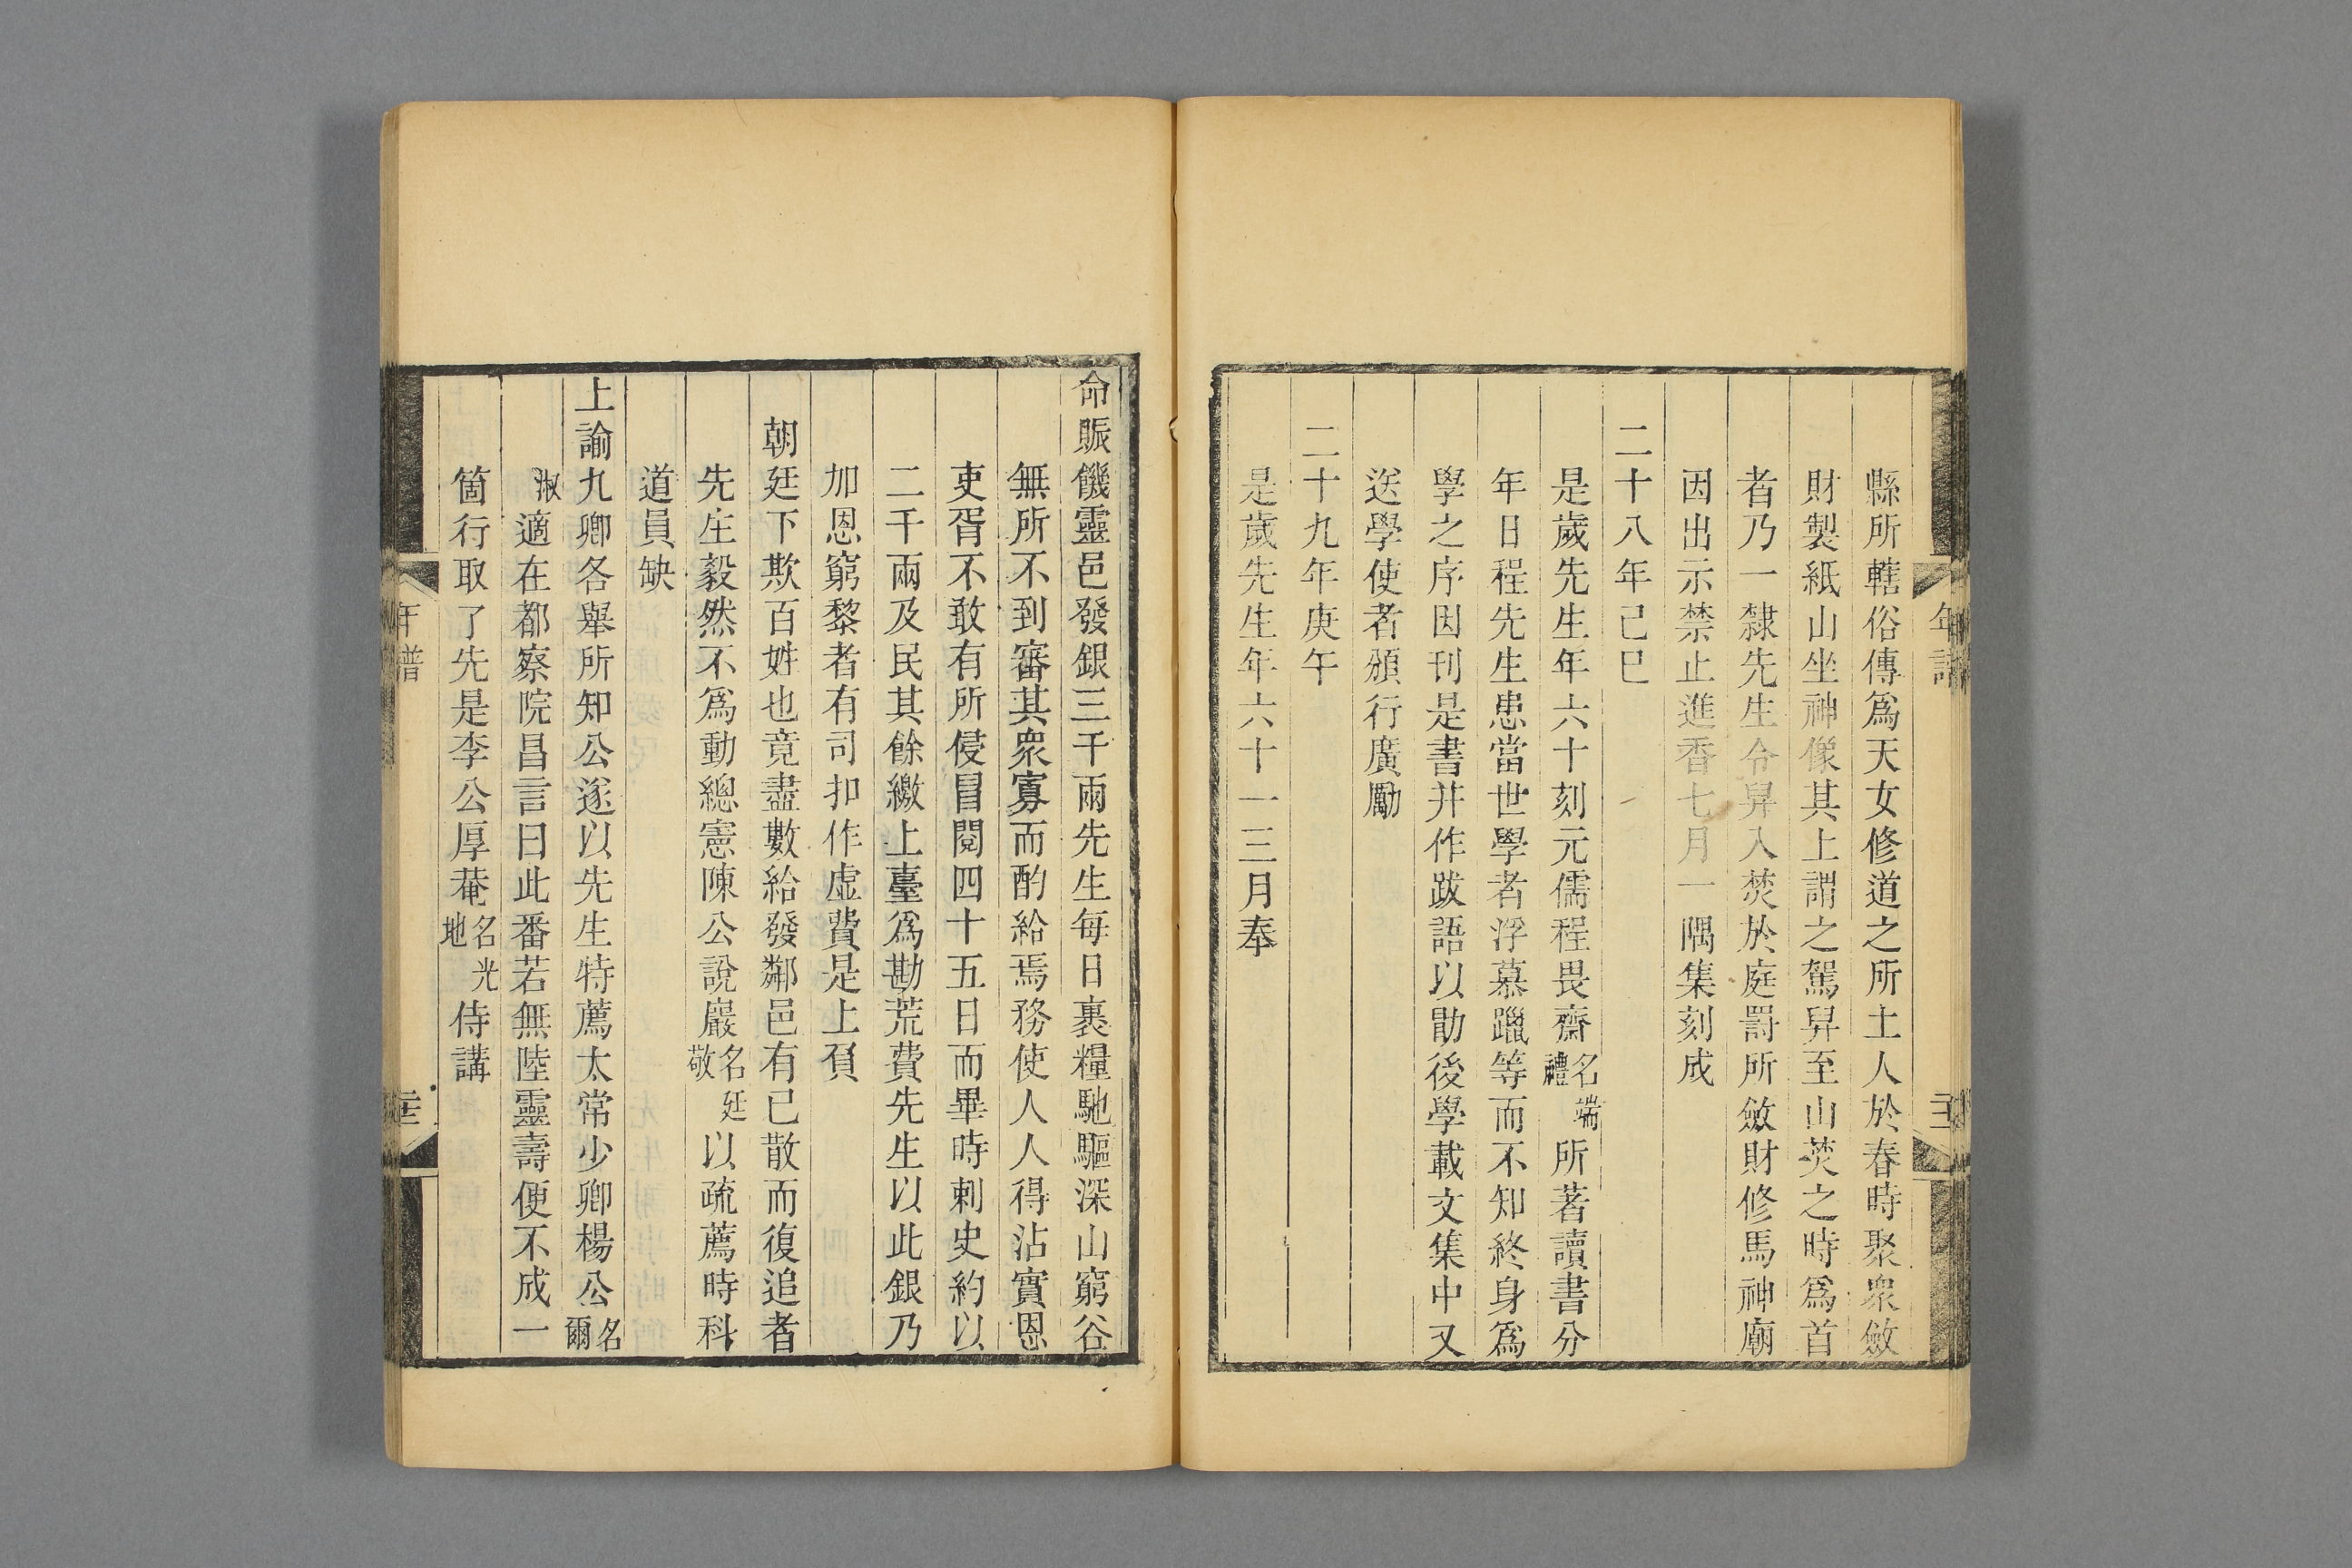 縣所轄俗傳爲天女修道之所土人於春時聚衆斂
財製紙山坐神像其上謂之駕舁至山焚之時爲首
者乃一隸先生令舁入焚於庭罰所斂財修馬神廟
因出示禁止進香七月一隅集刻成
二十八年己巳
是歲先生年六十刻元儒程畏齋名端禮所著讀書分
年日程先生患當世學者浮慕躐等而不知終身爲
學之序因刊是書幷作跋語以勖後學載文集中又
送學使者頒行廣勵
二十九年庚午
是歲先生年六十一三月奉
命賑饑靈邑發銀三千兩先生每日裹糧馳驅深山窮谷
無所不到審其衆寡而酌給焉務使人人得沾實恩
吏胥不敢有所侵冒閱四十五日而畢時剌史約以
二千兩及民其餘繳上臺爲勘荒費先生以此銀乃
加恩窮黎者有司扣作虛費是上負
朝廷下欺百姓也竟盡數給發鄰邑有已散而復追者
先生毅然不爲動總憲陳公說巖名廷敬以疏薦時科
道員缺
上諭九卿各舉所知公遂以先生特薦太常少卿楊公名爾
淑適在都察院昌言曰此番若無陸靈壽便不成一
箇行取了先是李公厚菴名光地侍講
年譜